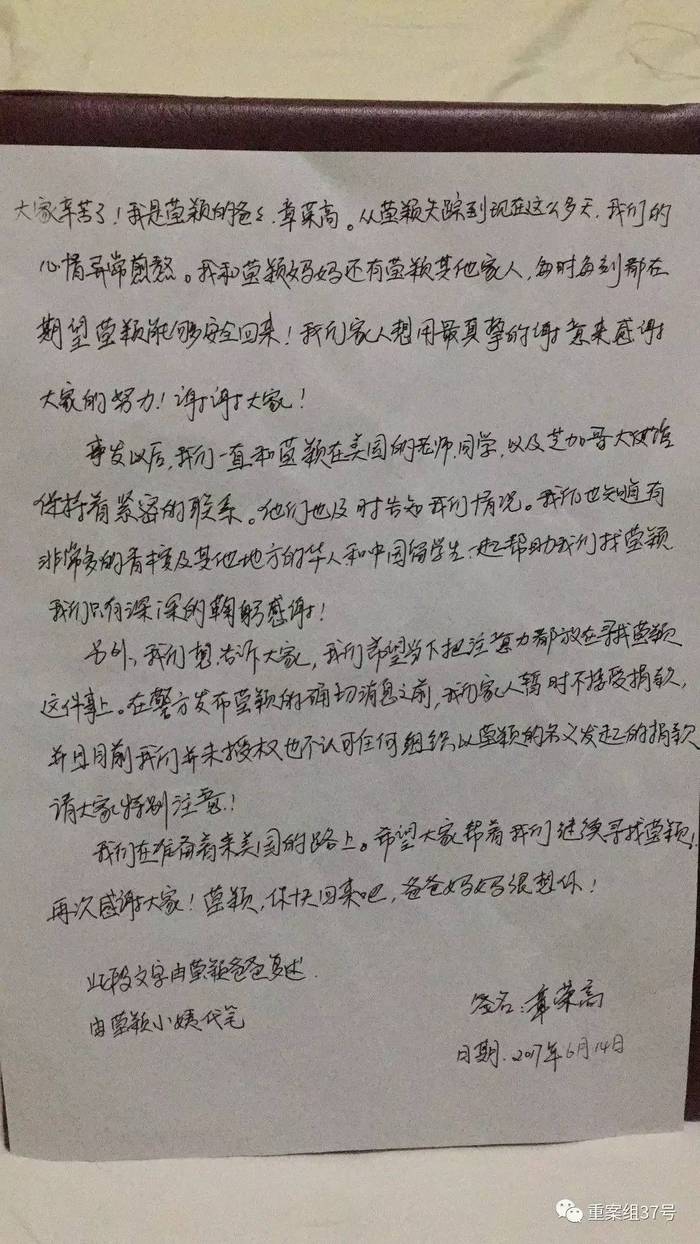 大家辛苦了！我是莹颖的爸爸，章荣高。从莹颖失踪到现在这么多天，我们的
心情异常煎熬。我和莹颖妈妈还有莹颖其他家人，每时每刻都在
期望莹颖能够安全回来！我们家人想用最真挚的谢意来感谢
大家的努力！谢谢大家！
事发以后，我们一直和莹颖在美国的老师、同学，以及芝加哥大使馆
保持着紧密的联系。他们也及时告知我们情况。我们也知道有
非常多的香槟及其他地方的华人和中国留学生一起帮助我们找莹颖
我们只有深深的鞠躬感谢！
另外，我们想告诉大家，我们希望当下把注意力都放在寻找莹颖
这件事上。在警方发布莹颖的确切消息之前，我们家人暂时不接受捐款，
并且目前我们并未授权也不认可任何组织以莹颖的名义发起的捐款
请大家特别注意！
我们在准备着来美国的路上。希望大家帮着我们继续寻找莹颖！
再次感谢大家！莹颖，你快回来吧，爸爸妈妈很想你！
此段文字由莹颖爸爸复述.
由莹颖小姨代笔
签名：章荣高
日期：2017年6月14日
重案组37号